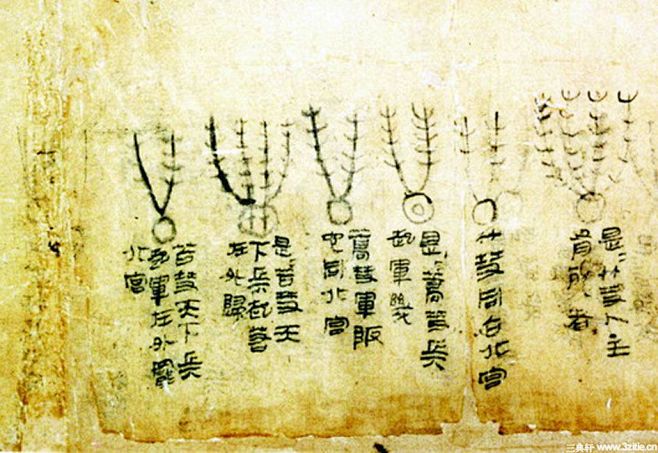 是=竹彗人主
有死者
竹彗同占北宮
是=蒿彗兵
起軍幾
蒿彗軍阪
它同北宮
是=苫彗天
下兵起若
在外歸
苫彗天下兵
起軍在外罷
北宮
www.3zitie.cn